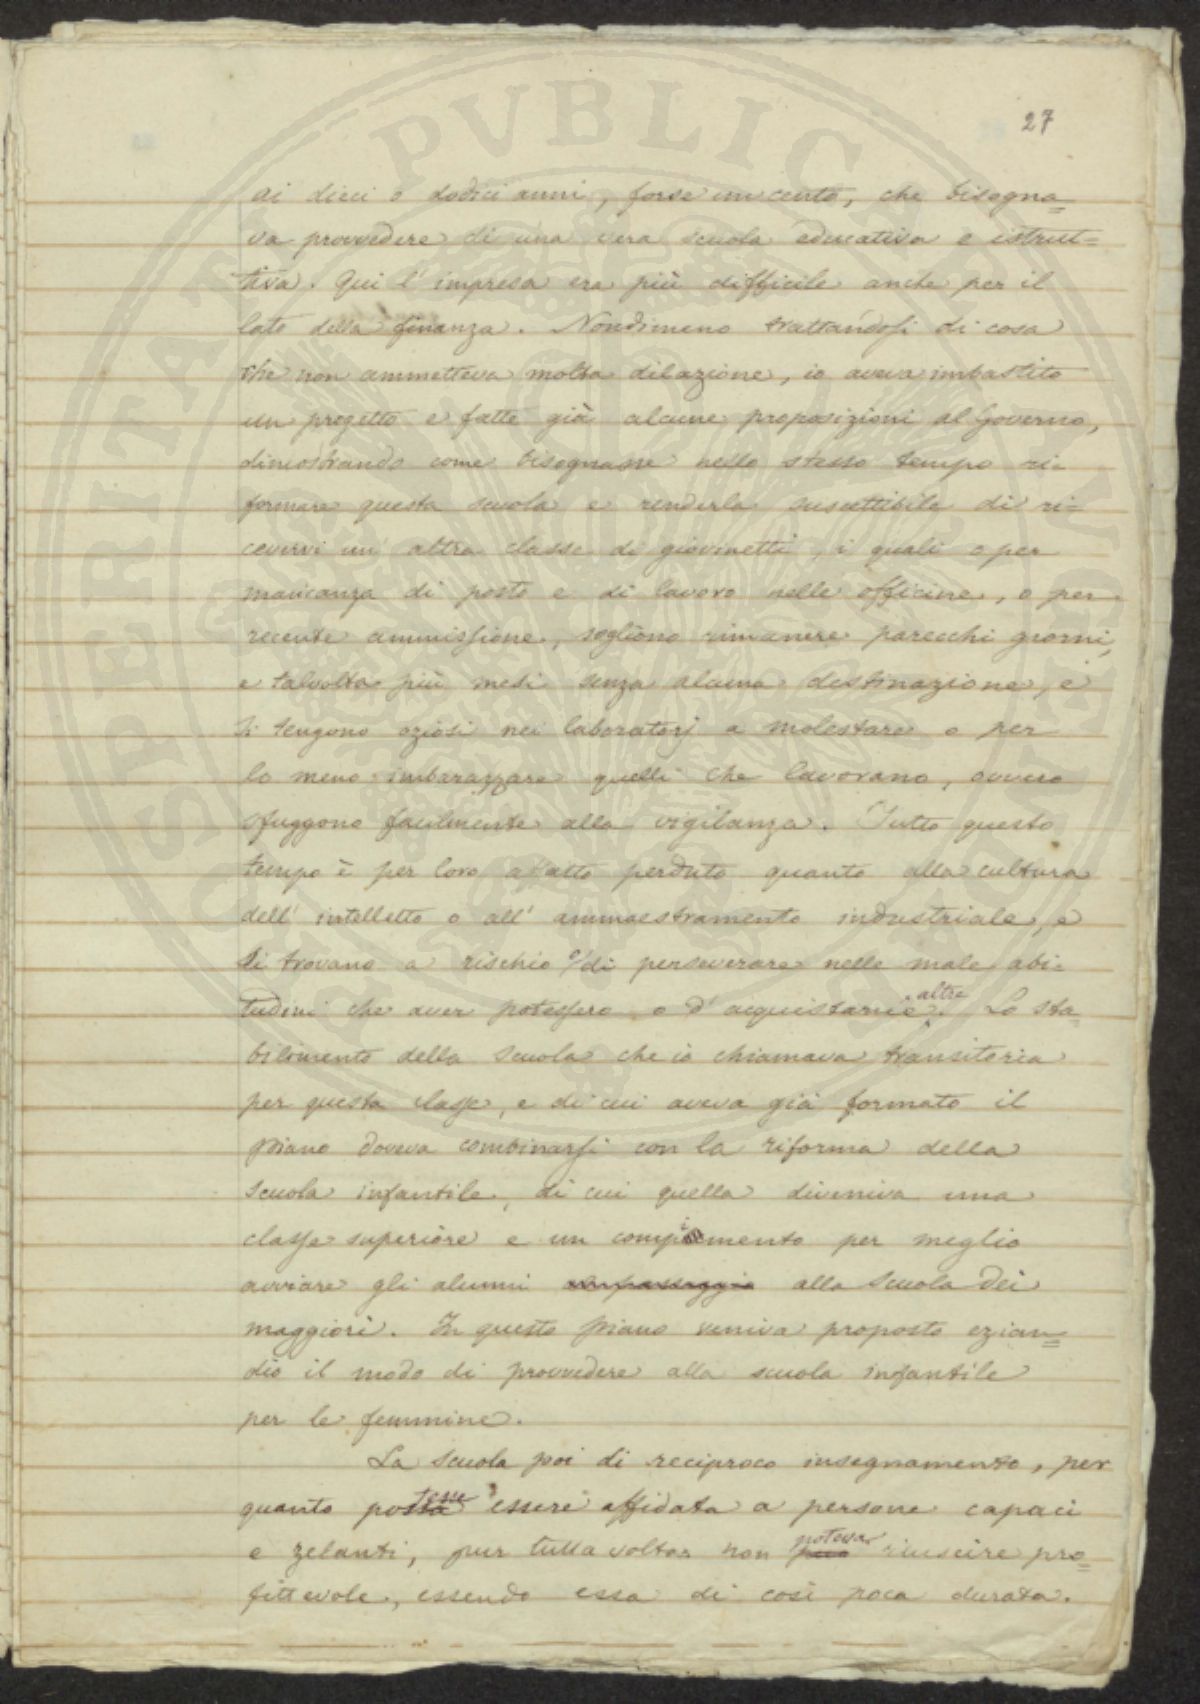 27
ai dieci o dodici anni, forse un cento, che bisogna=
va provvedere di una vera scuola educativa e istrut=
tiva. Qui l' impresa era più difficile anche per il
lato della finanza. Nondimeno trattandosi di cosa
che non ammetteva molta dilazione, io aveva imbastito
un progetto e fatte già alcune proposizioni al Governo,
dimostrando come bisognasse nello stesso tempo ri-
formare questa scuola e renderla suscettibile di ri=
cevervi un' altra classe di giovinetti, i quali o per
mancanza di posto e di lavoro nelle officine, o per
recente ammissione, sogliono rimanere parecchi giorni,
e talvolta più mesi senza alcuna destinazione, e
si tengono oziosi nei laboratorj a molestare o per
lo meno imbarazzare quelli che lavorano, ovvero
sfuggono facilmente alla vigilanza. Tutto questo
tempo è per loro affatto perduto quanto alla cultura
dell' intelletto o all' ammaestramento industriale, e
si trovano a rischio o di perseverare nelle male abi-
tudini che aver potessero o d' acquistarne altre. Lo sta=
bilimento della Scuola che io chiamava transitoria
per questa classe, e di cui aveva già formato il
piano doveva combinarsi con la riforma della
scuola infantile, di cui quella diveniva una
classe superiore e un compimento per meglio
avviare gli alunni alla Scuola dei
maggiori. In questo piano veniva proposto ezian=
dio il modo di provvedere alla scuola infantile
per le femmine.
La scuola poi di reciproco insegnamento, per
quanto potesse essere affidata a persone capaci
e zelanti, pur tutta volta non poteva riuscire pro=
fittevole, essendo essa di così poca durata.
PROSPERITATI PVBLICAE AVGENDAE